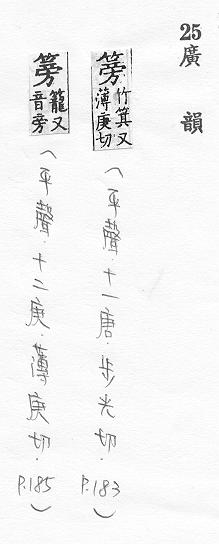 25廣韻
篣 竹箕又薄庚切 （平聲．十一唐．步光切．P.183）
篣 籠又音旁 （平聲．十二庚．薄庚切．P.185）